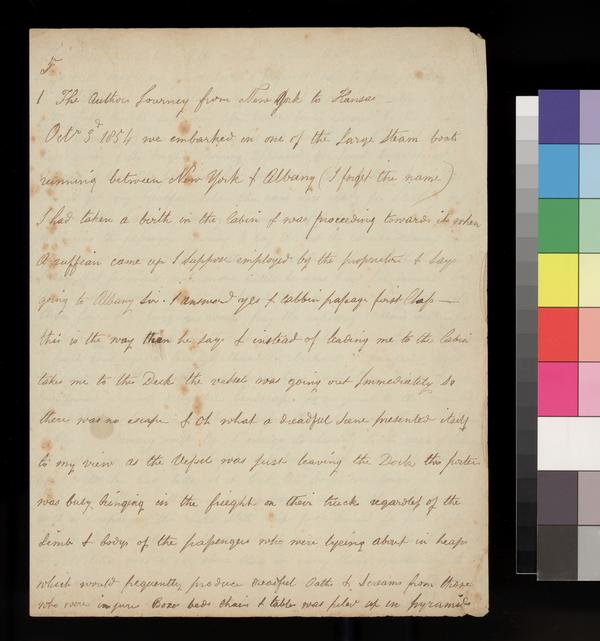 F
1 The Authors Journey from New York to Kansas
Octr 3d 1854 we embarked in one of the Large Steam boats
running between New York & Albany (I forget the name)
I had taken a birth in the Cabin & was proceeding towards it when
A ruffian came up I suppose employed by the proprietors & says
going to Albany Sir. I answered yes & cabbin passage first Class —
this is the way then he says & instead of leading me to the Cabin
takes me to the Deck the vessel was going out Immediately So
there was no escape & Oh what a dreadful Scene presented itself
to my view as the Vessel was just leaving the Dock this porters
was busy bringing in the freight on their trucks regardless of the
Limbs & bodys of the passengers who were lyeing about in heaps
which would frequently produce dreadful Oaths & Screams from those
who were injure Boxes beds chairs & tables was piled up in pyramids